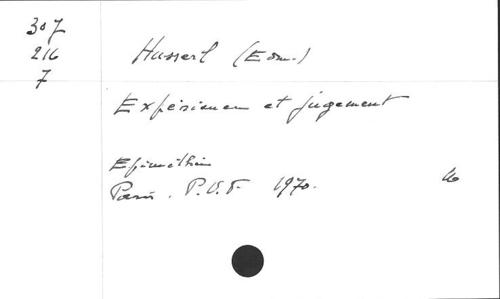 307
216
7
Husserl (Edm.)
Expérience et jugement
Epiméthée
Paris. P.U.F. 1970.